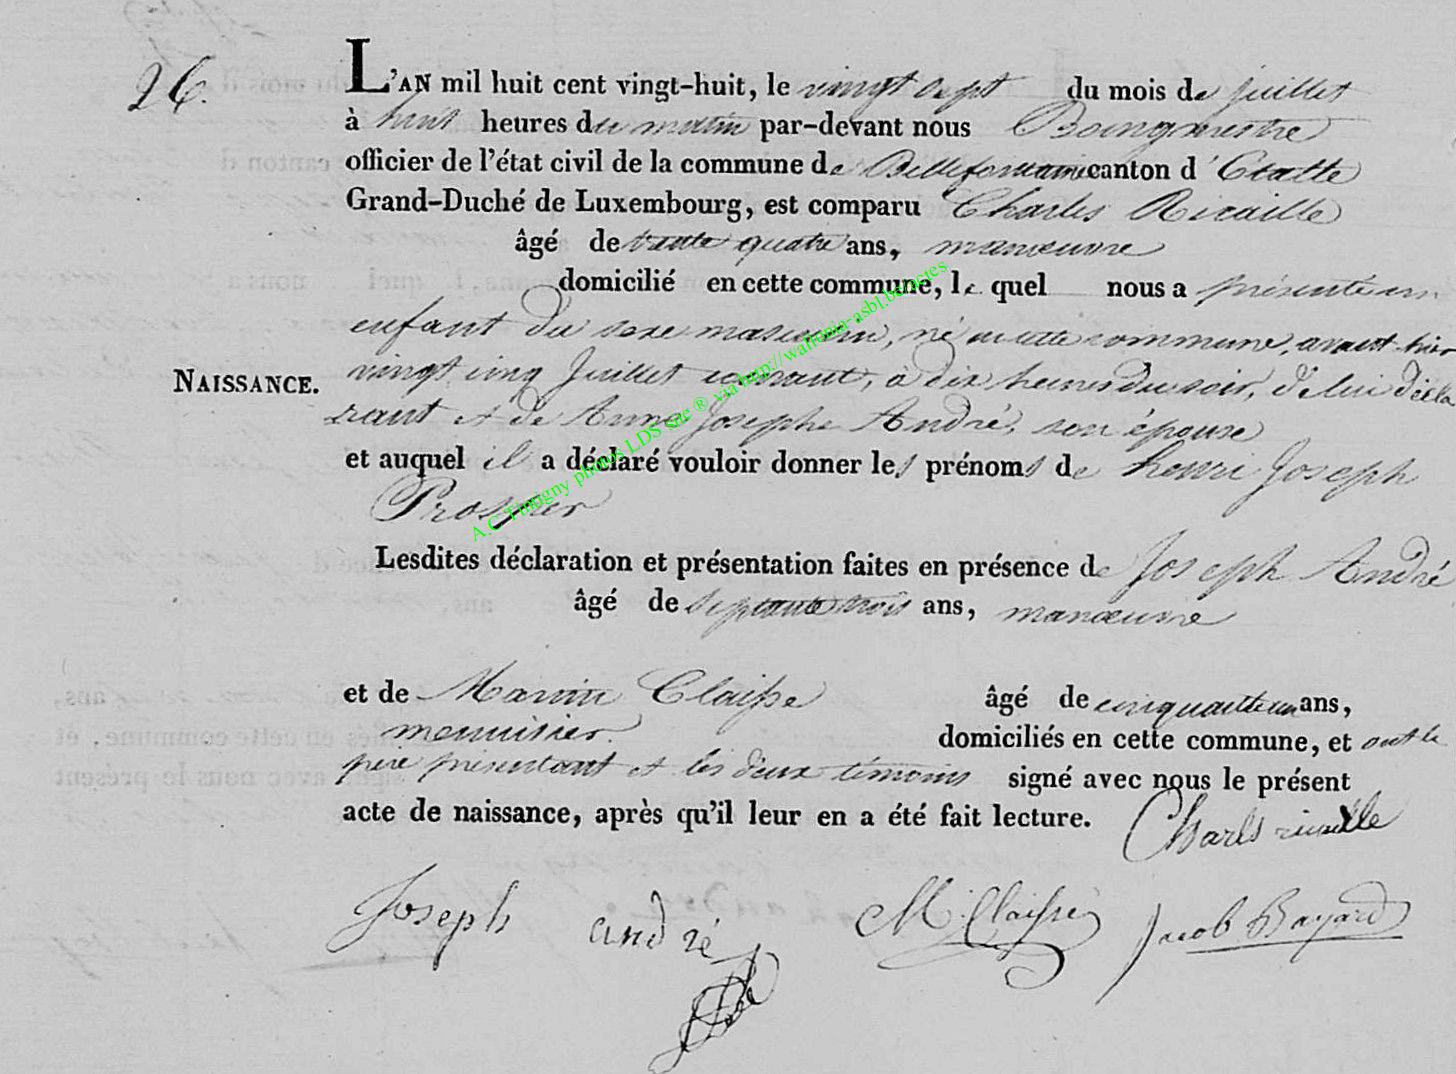 26.
L'AN mil huit cent vingt-huit, le vingt sept du mois de juillet
à huit heures du matin par-devant nous Bourgmestre
officier de l'état civil de la commune de Bellefontaine canton d'Etalle
Grand-Duché de Luxembourg, est comparu Charles Ricaille
âgé de trente quatre ans, manœuvre
domicilié en cette commune, le quel nous a présenté un
enfant du sexe masculin, né en cette commune, avant hier
NAISSANCE.
vingt cinq Juillet courant, à dix heures du soir, de lui décla
rant et de Anne Josephe André, son épouse
et auquel il a déclaré vouloir donner les prénoms de henri Joseph
Prosper
Lesdites déclaration et présentation faites en présence de Joseph André
âgé de septante trois ans, manœuvre
et de Martin Claisse âgé de cinquante un ans,
menuisier. domiciliés en cette commune, et ont le
père présentant et les deux témoins signé avec nous le présent
acte de naissance, après qu'il leur en a été fait lecture.
Charls ricaille
Joseph andré
M. Claisse
Jacob Bayard
A.C. Tintigny photos LDS sae ® via http://wallonia-asbl.be/actes